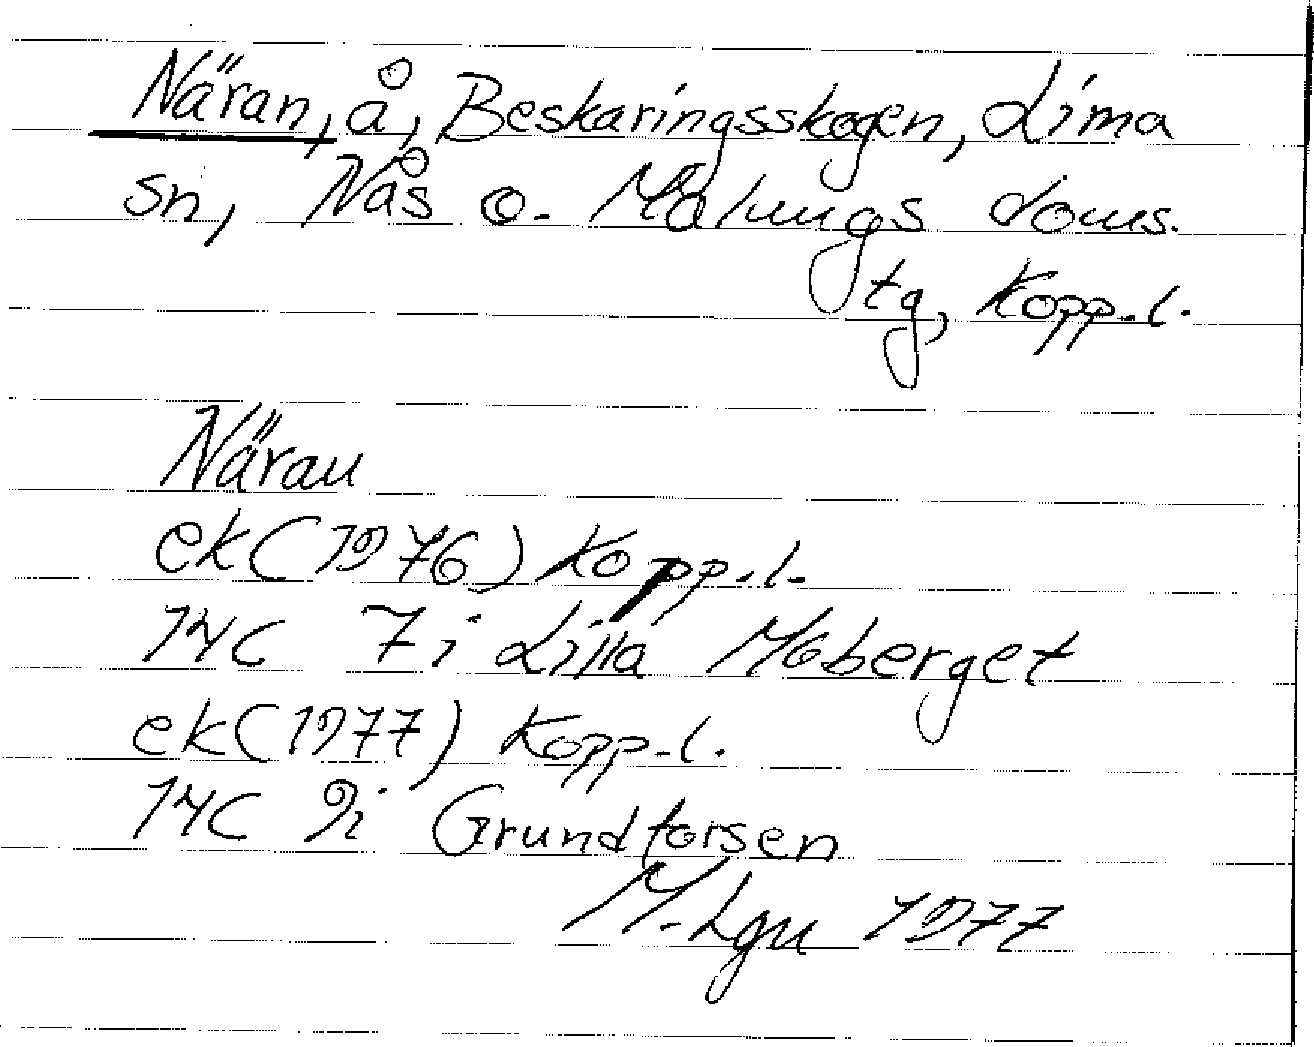 Näran, å, Beskaringsskogen, Lima
sn, Nås o. Malungs doms.
tg, Kopp.l.
Näran
ek (1976) Kopp.l.
14C 7i Lilla Moberget
ek (1977) Kopp.l.
14C 9i Grundforsen
M. Lgn 1977